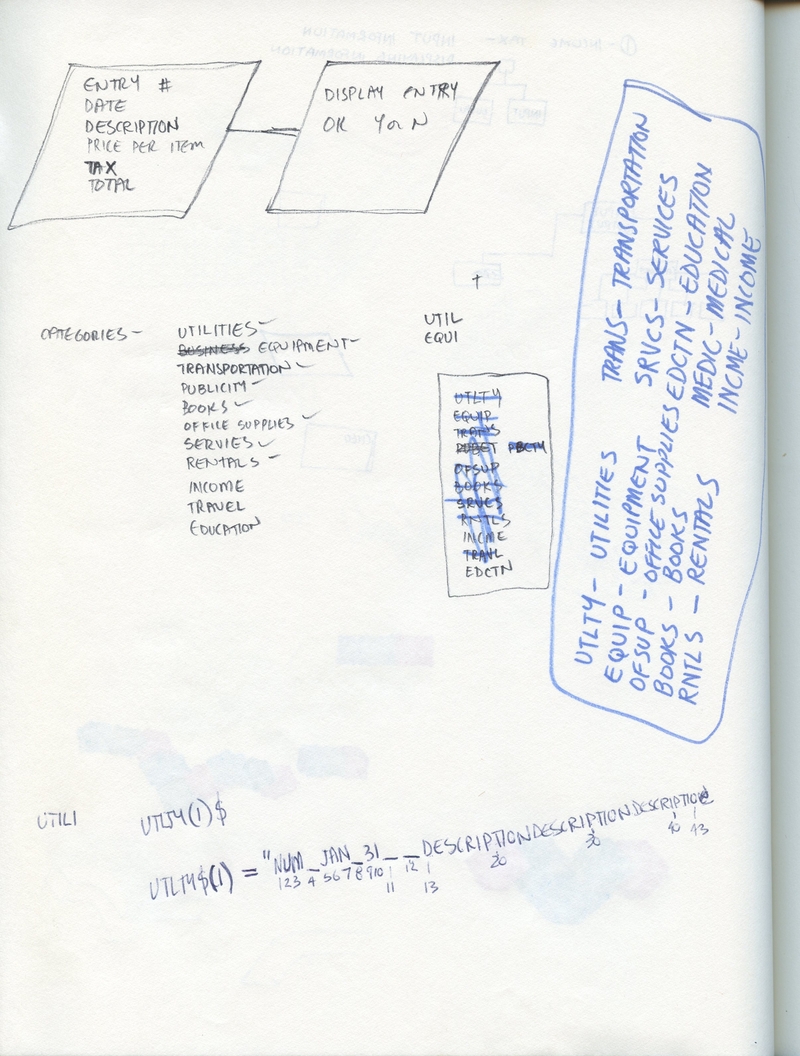 ENTRY #
DATE
DESCRIPTION
PRICE PER ITEM
TAX
TOTAL
DISPLAY ENTRY
OK Y or N
CATEGORIES -
UTILITIES
BUSINESS EQUIPMENT
TRANSPORTATION
PUBLICITY
BOOKS
OFFICE SUPPLIES
SERVIES
RENTALS
INCOME
TRAVEL
EDUCATION
UTIL
EQUI
UTLTY
EQUIP
TRANS
PBCTY
OFSUP
BOOKS
SRVCS
RNTLS
INCME
TRAVL
EDCTN
UTLTY - UTILITIES
EQUIP - EQUIPMENT
OFSUP - OFFICE SUPPLIES
BOOKS - BOOKS
RNTLS - RENTALS
TRANS - TRANSPORTATION
SRVCS - SERVICES
EDCTN EDUCATION
MEDIC - MEDICAL
INCME - INCOME
UTILI
UTLTY(1)$
UTLTY$(1) = "NUM_JAN_31_ _DESCRIPTIONDESCRIPTIONDESCRIPTION
123 4 5678910 11 12 13 20 30 40 43
① - INCOME TAX - INPUT INFORMATION
INFORMATION